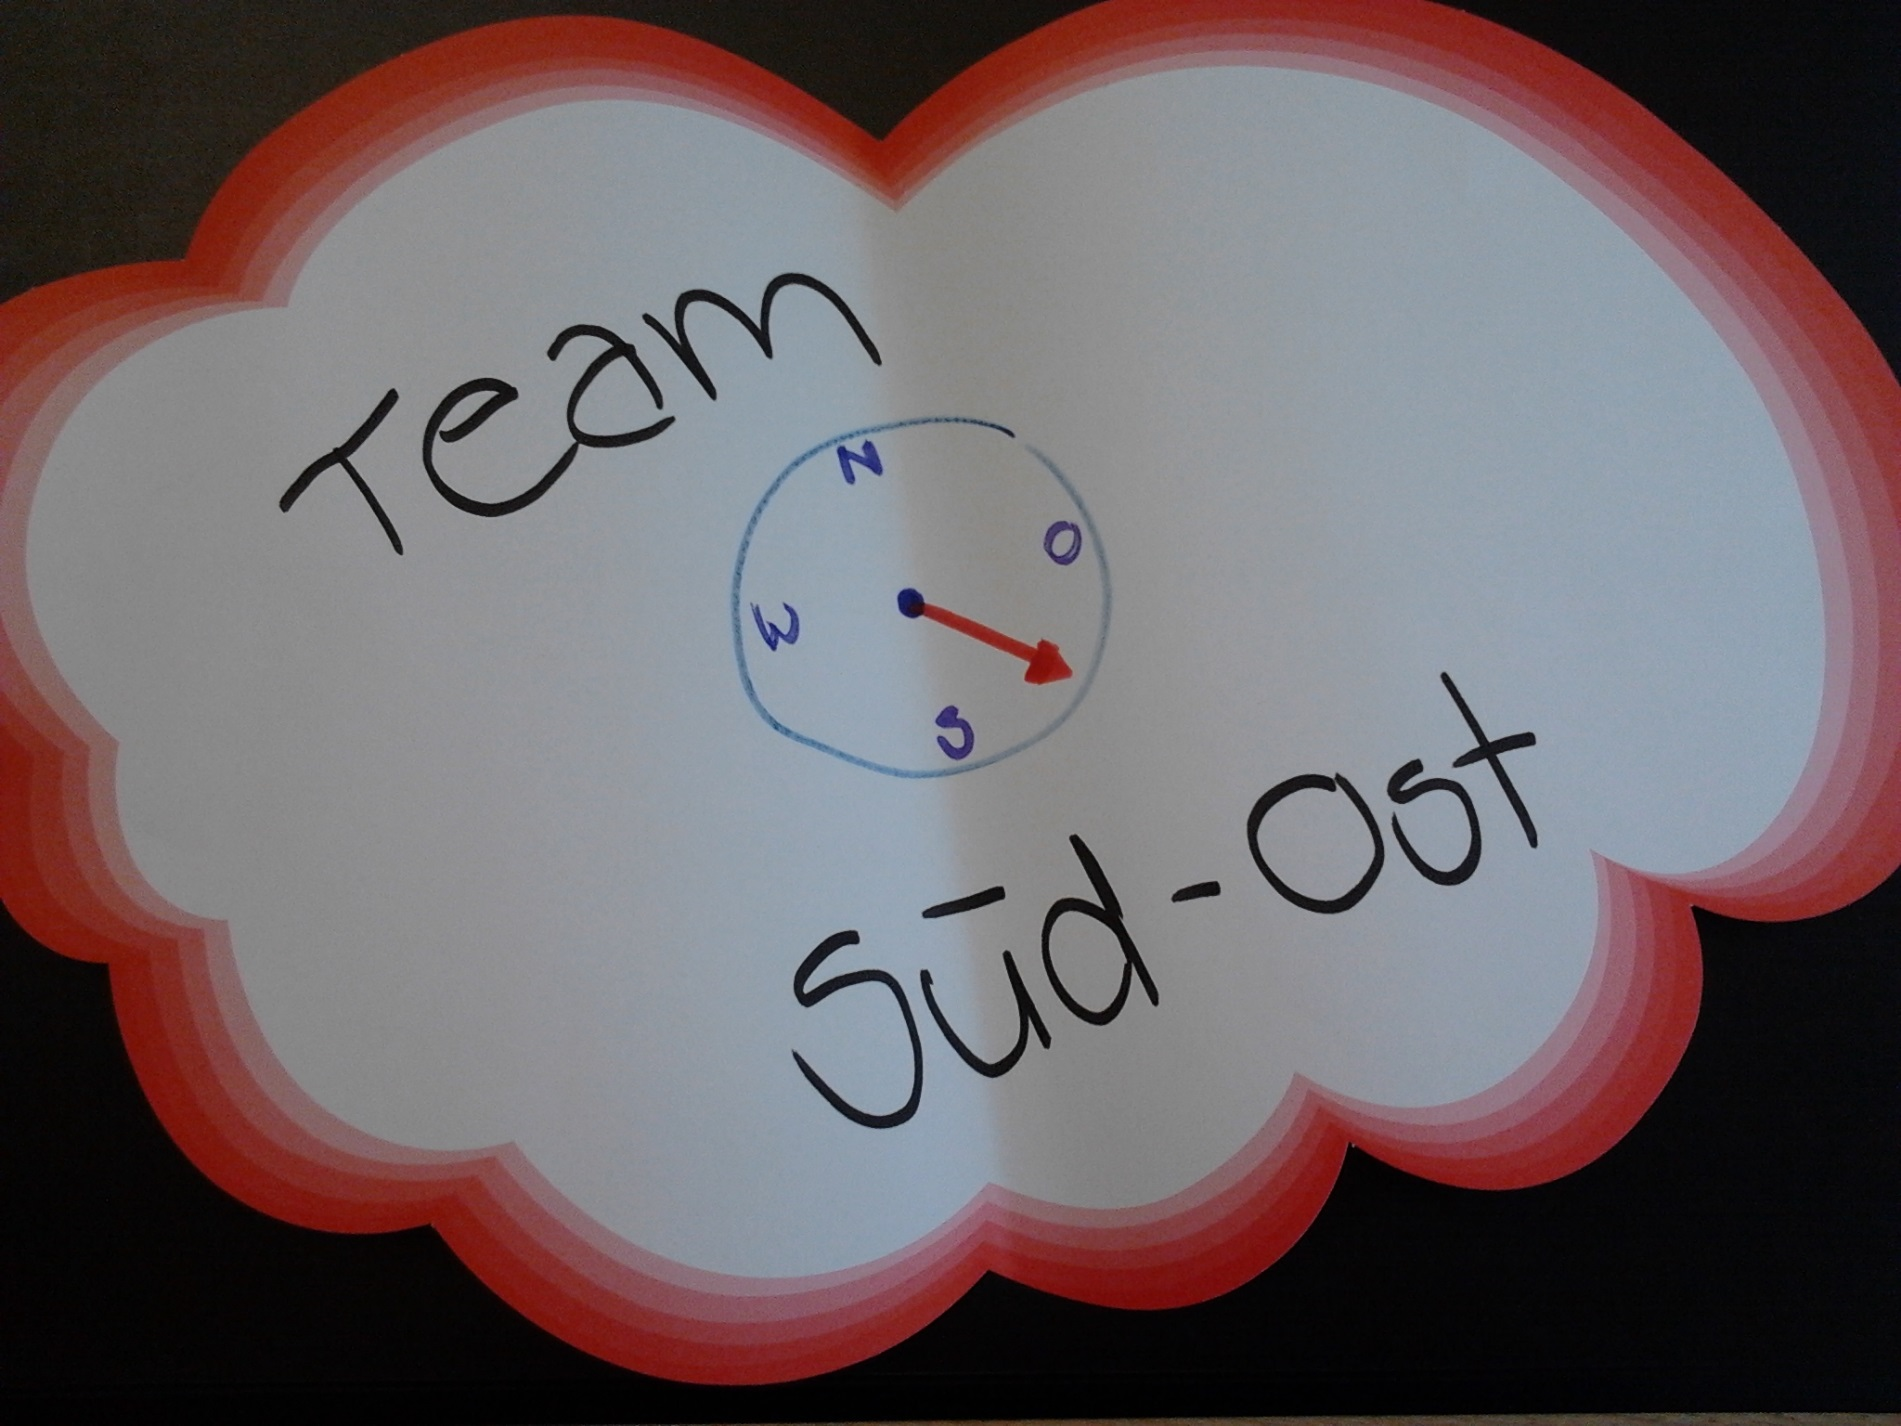 Team
N
O
W
S
Süd-Ost